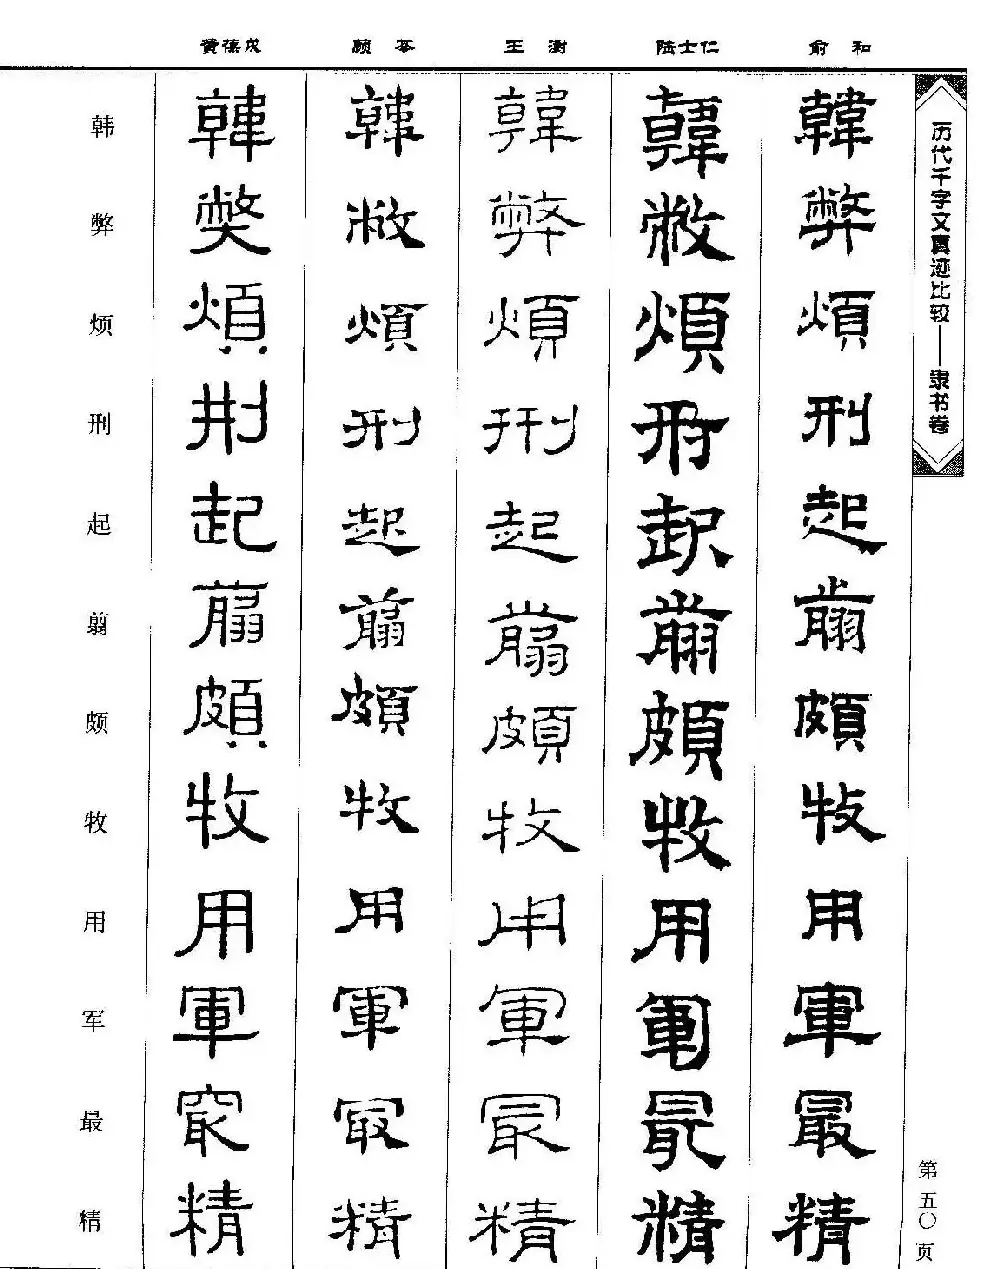 黄葆戉 顾苓 王澍 陆士仁 俞和
历代千字文真迹比较——隶书卷
韩 韓 韓 韓 韓 韓
弊 獘 敝 弊 敝 弊
烦 煩 煩 煩 煩 煩
刑 刑 刑 刑 刑 刑
起 起 起 起 起 起
翦 翦 翦 翦 翦 翦
颇 頗 頗 頗 頗 頗
牧 牧 牧 牧 牧 牧
用 用 用 用 用 用
军 軍 軍 軍 軍 軍
最 最 最 最 最 最
精 精 精 精 精 精
第五〇页